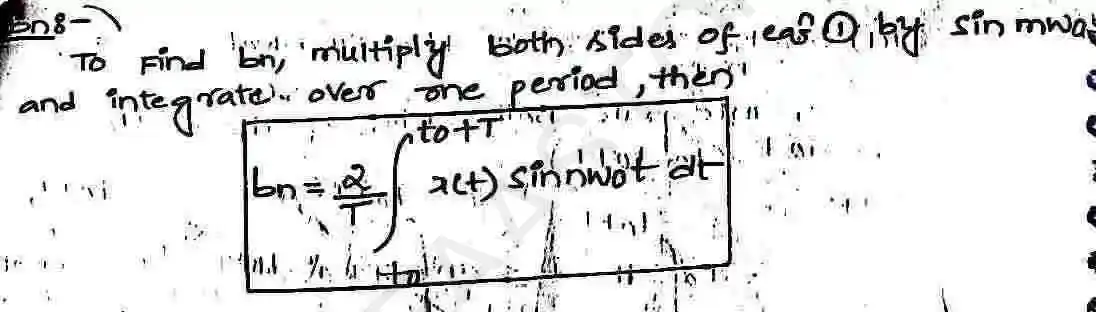 bn:-
To Find bn, multiply both sides of eqn ①, by sin mwo
and integrate over one period, then
bn = 2/T ∫ to+T to x(t) sin nwot dt